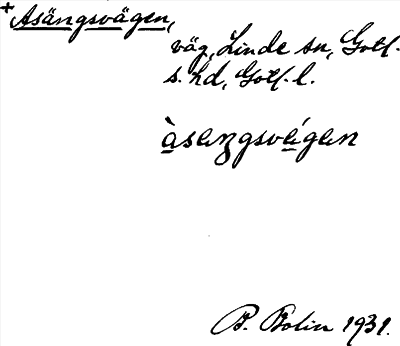 + Asängsvägen,
väg, Linde sn, Gotl.
s. hd, Gotl. l.
àsaŋgsvégan
B. Bolin 1931.